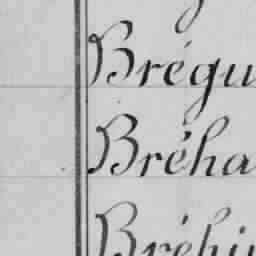 Brégu
Bréha
Bréhi